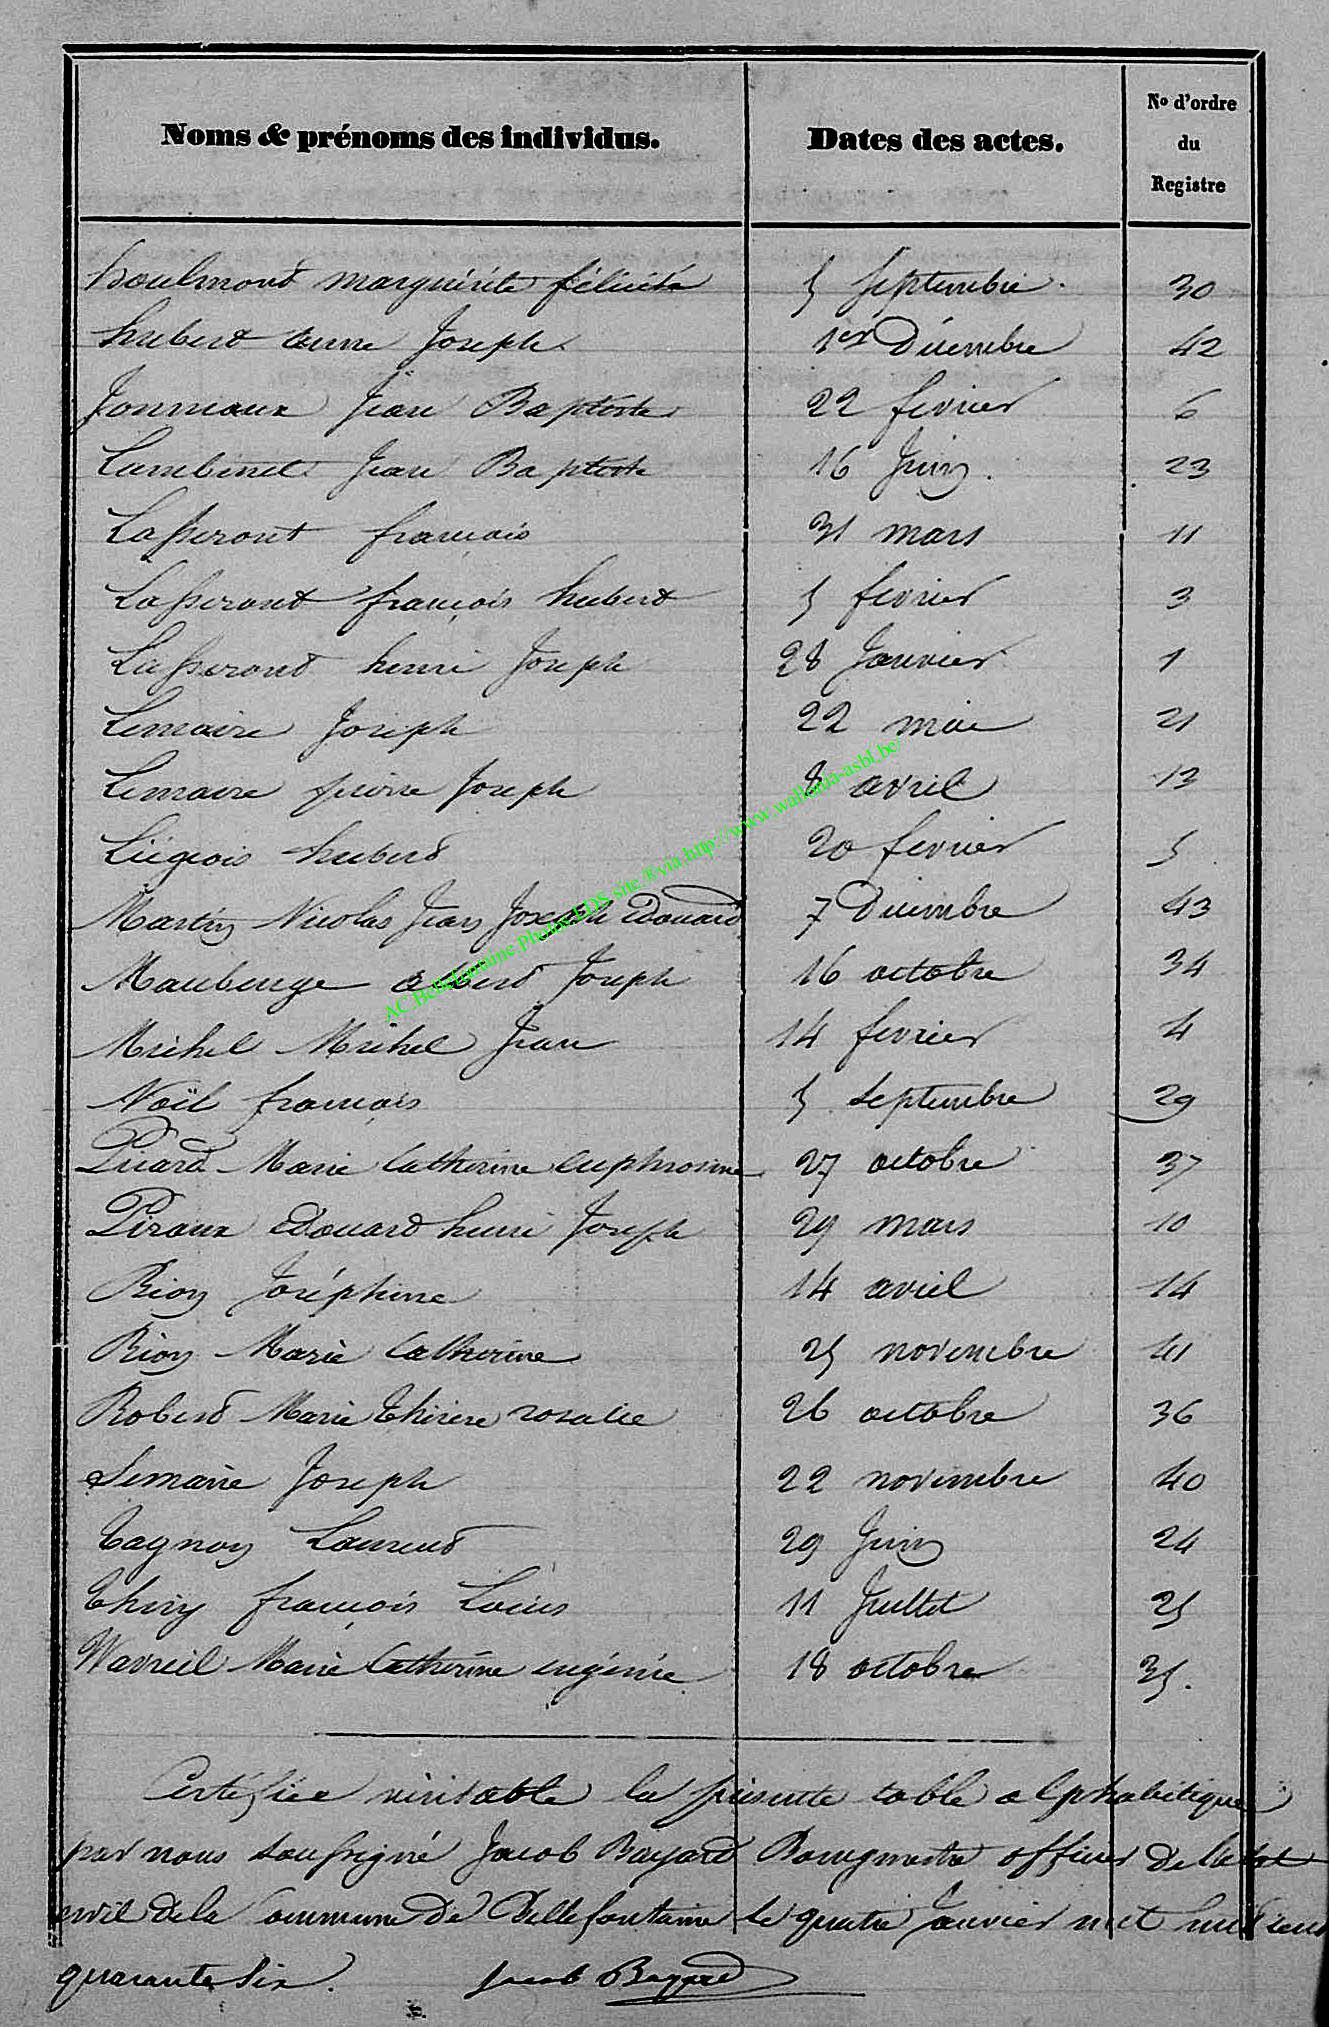 Noms & prénoms des individus. Dates des actes. No d'ordre du Registre
houlmont marguérite félicité 5 Septembre 30
hubert anne Joseph 1er Décembre 42
Jonmaux Jean Baptiste 22 fevrier 6
Lambinet Jean Baptiste 16 Juin 23
Lasseront francois 31 mars 11
Lasseront françois hubert 5 fevrier 3
Lasseront henri Joseph 28 Janvier 1
Lemaire Joseph 22 mai 21
Lemaire pierre Joseph 8 avril 13
Liégeois hubert 20 fevrier 5
Martin Nicolas Jean Joseph Edouard 7 Decembre 43
Maubeuge Joseph 16 octobre 34
Michel Michel Jean 14 fevrier 4
Noël francois 5 Septembre 29
Picard Marie Catherine Euphrosine 27 octobre 37
Piraux Edouard henri Joseph 29 mars 10
Rion Joséphine 14 avril 14
Rion Marie Catherine 25 novembre 41
Robert Marie Thérèse rosalie 26 octobre 36
Simaire Joseph 22 novembre 40
Tagnon Laurent 29 Juin 24
Thiry françois Louis 11 Juillet 25
Wavreil Marie Catherine eugénie 18 octobre 35.
Certifiée véritable la présente table alphabétique
par nous soussigné Jacob Bayard Bourgmestre officier de l'état
civil de la Commune de Bellefontaine le quatre Janvier mil huit cent
quarante six. Jacob Bayard
AC Bellefontaine Photos LDS site & via http://www.wallonia-asbl.be/